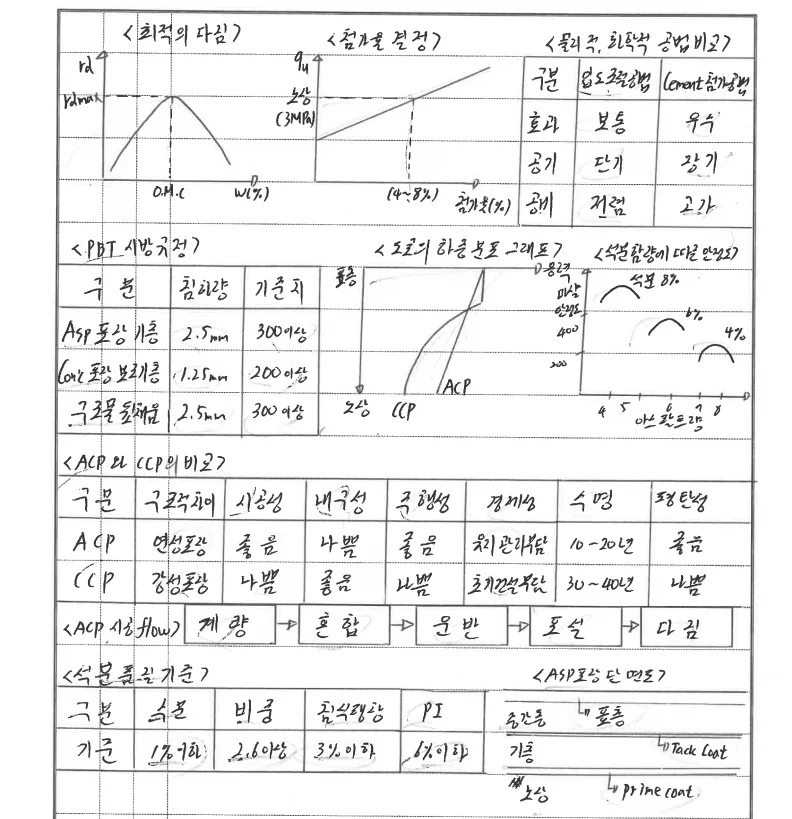 <최적의 다짐>
<첨가율 결정>
<물리적, 화학적 공법비교>
rd
rdmax
O.M.C
W(%)
qu
노상
(3MPa)
(4~8%)
첨가율(%)
구분 입도조절공법 Cement첨가공법
효과 보통 우수
공기 단기 장기
공비 저렴 고가
<PBT 시방규정>
<도로의 하중 분포 그래프>
<석분함량에 따른 안정도>
구 분 침하량 기준치
Asp포장 기층 2.5mm 300이상
Conc포장 보조기층 1.25mm 200이상
구조물 뒷채움 2.5mm 300이상
표층
응력
노상
CCP
ACP
마샬
안정도
400
200
석분 8%
6%
4%
4 5 6 7 8
아스팔트량
<ACP와 CCP의 비교>
구분 구조적차이 시공성 내구성 주행성 경제성 수명 평탄성
ACP 연성포장 좋음 나쁨 좋음 유지관리부담 10~20년 좋음
CCP 강성포장 나쁨 좋음 나쁨 초기건설부담 30~40년 나쁨
<ACP 시공 flow> 계량 혼합 운반 포설 다짐
<석분품질기준>
<ASP포장 단면도>
구분 수분 비중 침식팽창 PI
기준 1%이하 2.6이상 3%이하 6%이하
표층
중간층
Tack Coat
기층
prime coat
노상